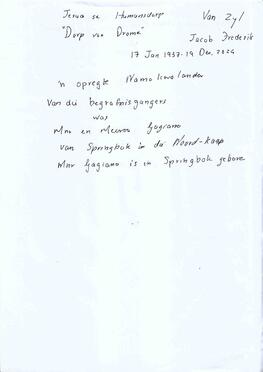 Jerua se Humansdorp
"Dorp van Drome"
Van Zyl
Jacob Frederik
17 Jan 1937-19 Dec, 2024
'n opregte Namakwalander
Van die begrafnisgangers
was
Mnr en Mevrou Gagiano
van Springbok in die Noord-kaap
Mnr Gagiano is in Springbok gebore